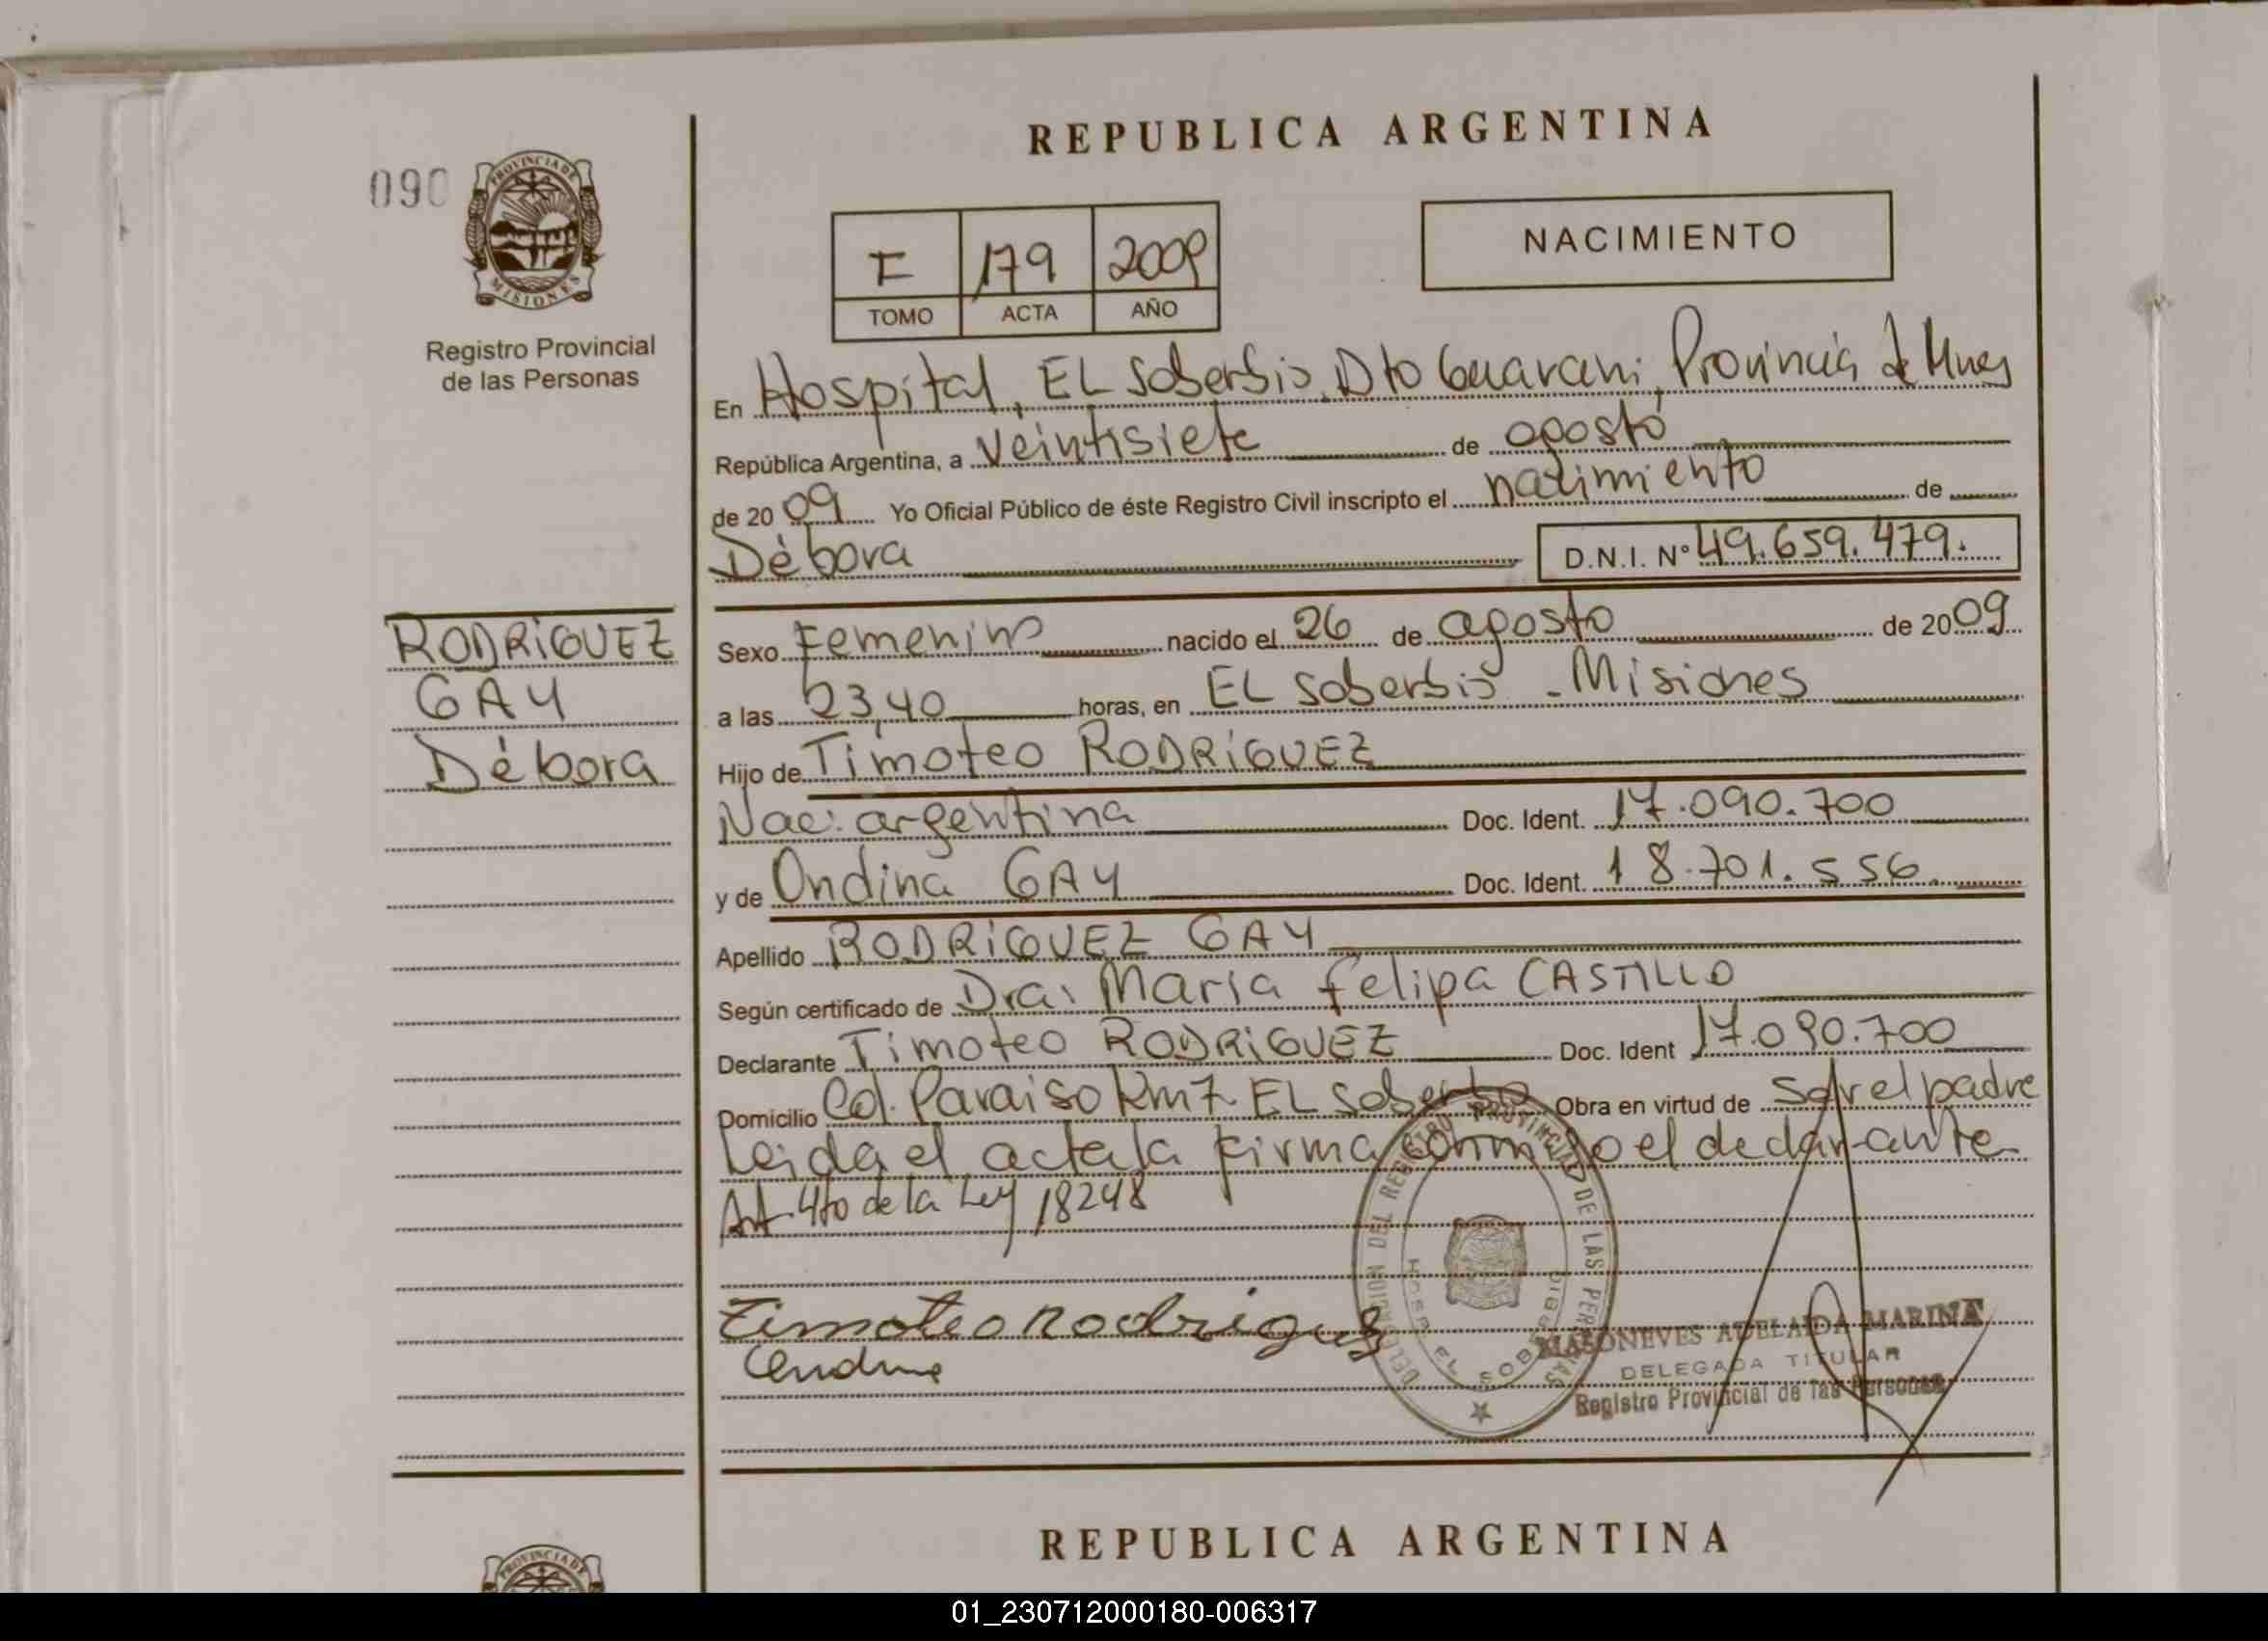 REPUBLICA ARGENTINA
090
PROVINCIA DE
MISIONES
Registro Provincial
de las Personas
I 179 2009
TOMO ACTA AÑO
NACIMIENTO
En Hospital, EL Soberbio, Dto Guarani, Provincia de Mnes
República Argentina, a veintisiete de agosto
de 2009 Yo Oficial Público de éste Registro Civil inscripto el nacimiento de
Dèbora D.N.I. Nº 49.659.479.
RODRiGUEZ
GAY
Dèbora
Sexo Femenino nacido el 26 de agosto de 2009
a las 23,40 horas, en EL Soberbio - Misiones
Hijo de Timoteo RODRiGUEZ
Nac: argentina Doc. Ident. 17.090.700
y de Ondina GAY Doc. Ident. 18.701.556
Apellido RODRiGUEZ GAY
Según certificado de Dra: Maria Felipa CASTILLO
Declarante Timoteo RODRiGUEZ Doc. Ident 17.090.700
Domicilio Col. Paraiso Km 7 EL Soberbio Obra en virtud de ser el padre
Leida el acta la firma conmigo el declarante
Art. 4to de la Ley 18248
Timoteo Rodrigues
DELEGACION DEL REGISTRO PROVINCIAL DE LAS PERSONAS
HOSP. EL SOBERBIO
MASONEVES ADELAIDA MARINA
DELEGADA TITULAR
Registro Provincial de las Personas
REPUBLICA ARGENTINA
PROVINCIA DE
01_230712000180-006317